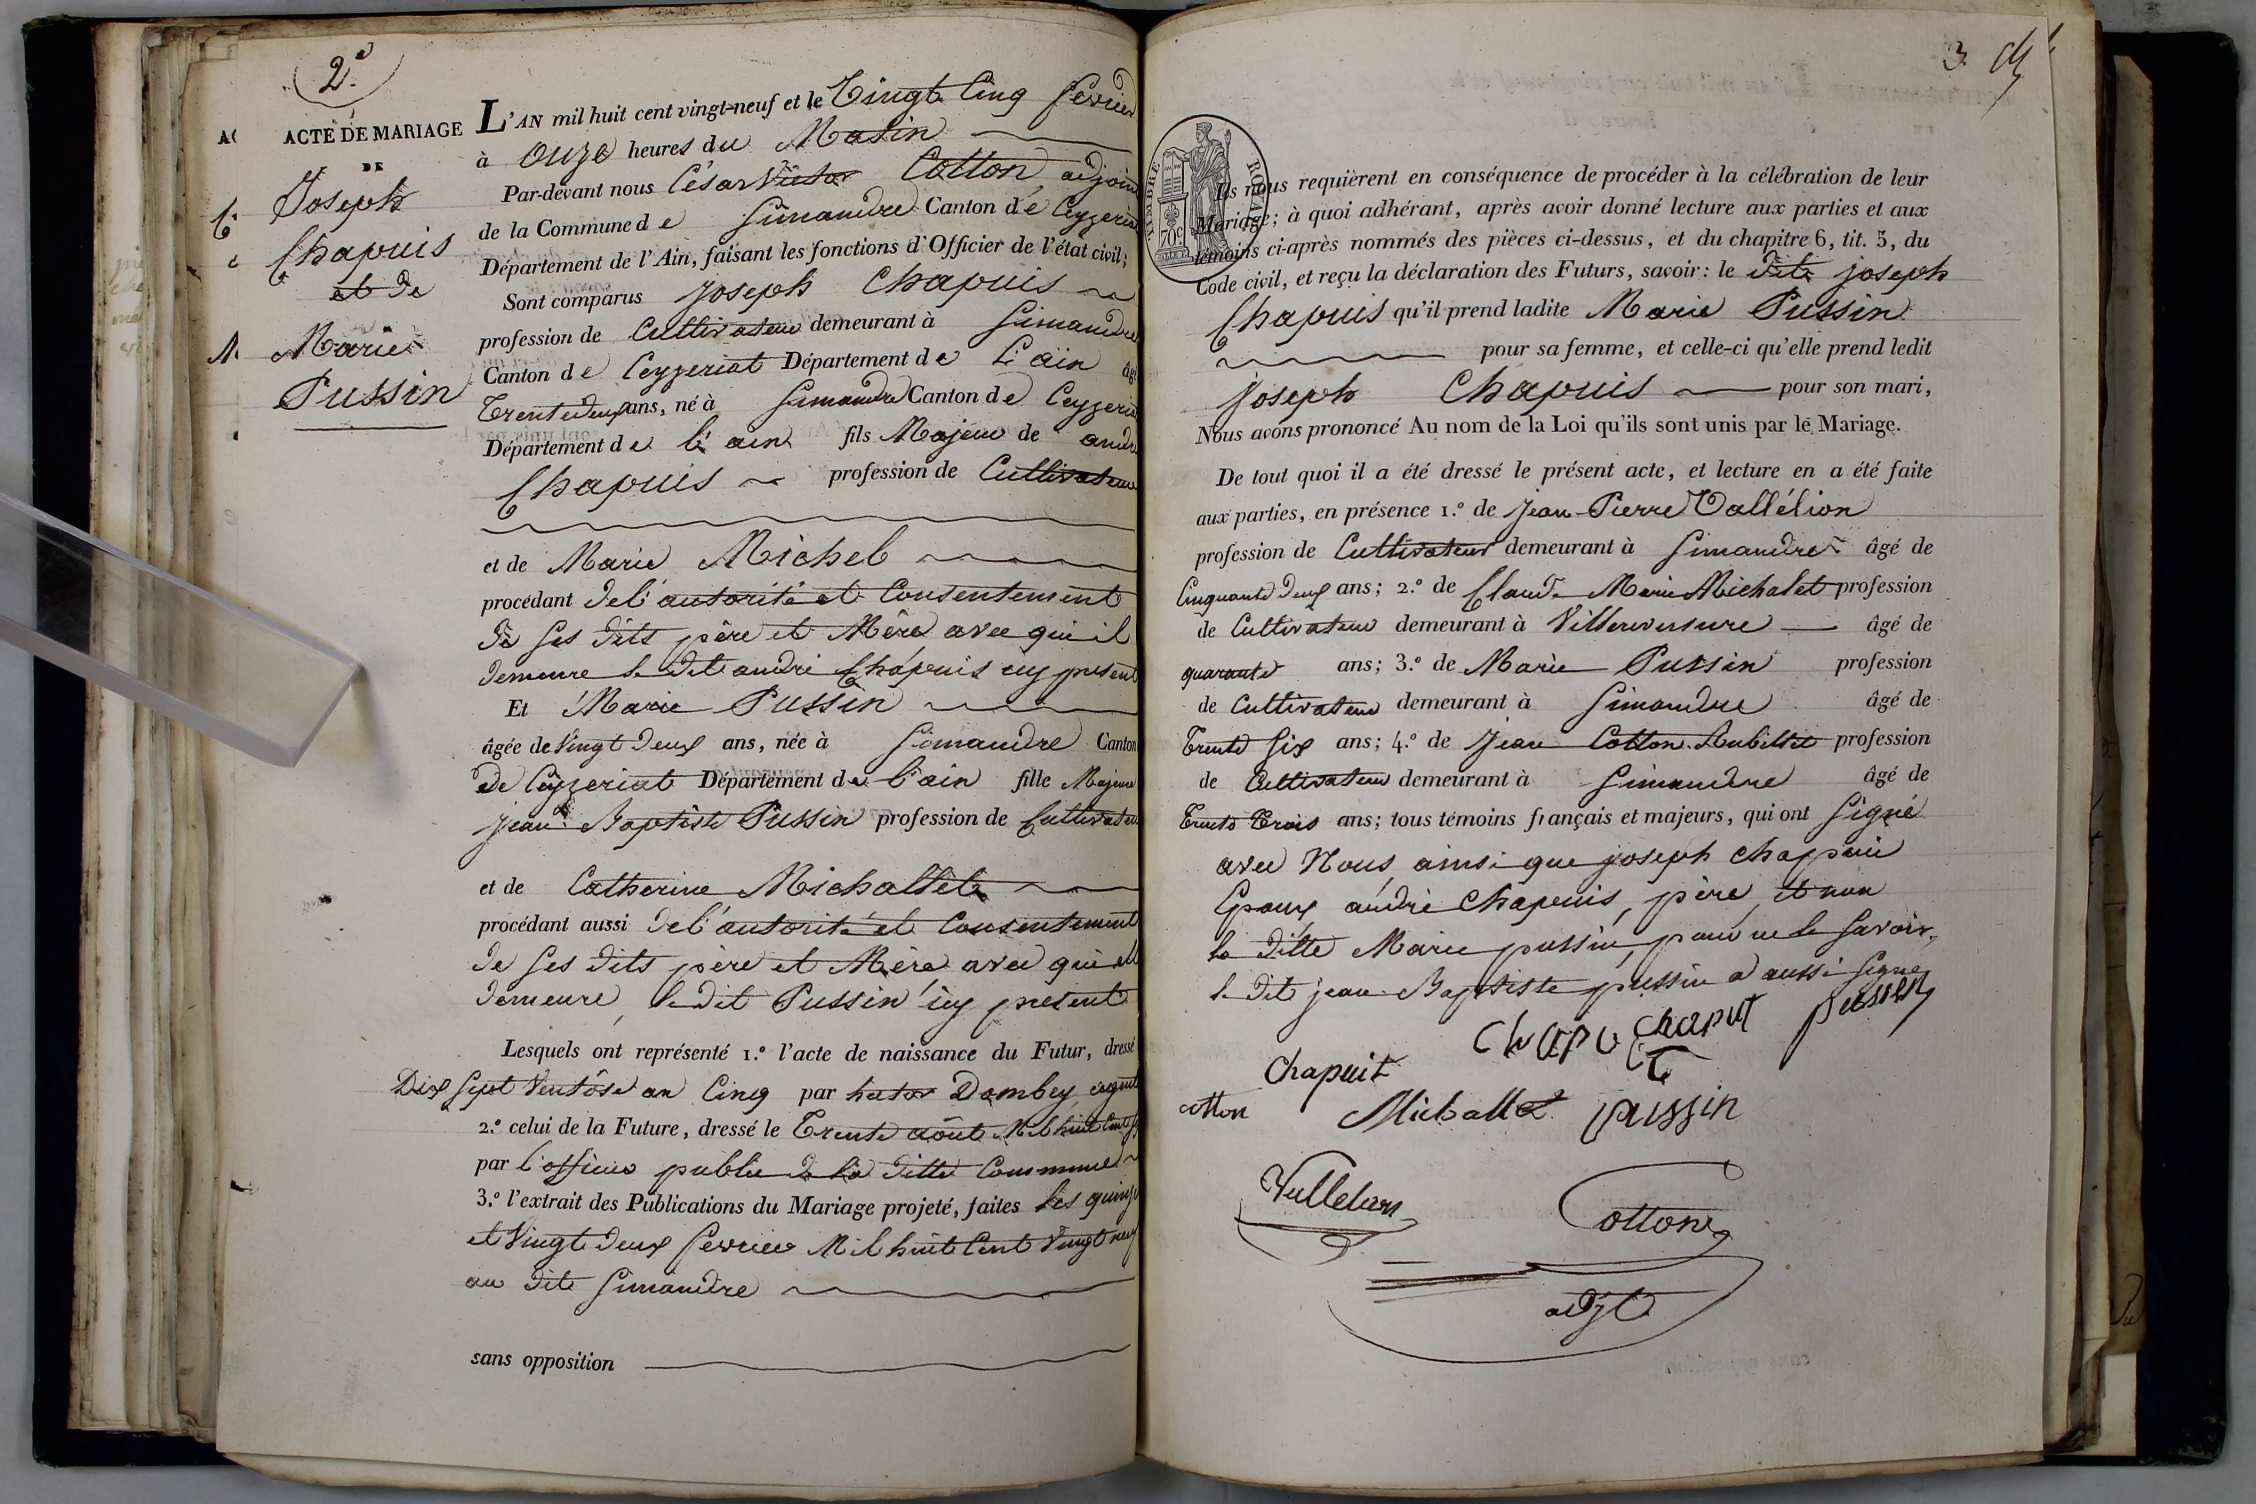 2.e
ACTE DE MARIAGE
DE
Joseph
Chapuis
et de
Marie
Pussin
L'AN mil huit cent vingt-neuf et le Vingt Cinq fevrier
à Onze heures du Matin
Par-devant nous César Victor Cotton adjoint
de la Commune de Simandre Canton de Ceyzeriat
Département de l'Ain, faisant les fonctions d'Officier de l'état civil;
Sont comparus Joseph Chapuis
profession de Cultivateur demeurant à Simandre
Canton de Ceyzeriat Département de L'ain âgé
Trente deux ans, né à Simandre Canton de Ceyzeriat
Département de l'ain fils Majeur de andré
Chapuis profession de Cultivateur
et de Marie Michel
procédant de l'autorité et Consentement
de ses dits père et Mère avec qui il
demeure le dit andré Chapuis icy present
Et Marie Pussin
âgée de Vingt Deux ans, née à Simandre Canton
de Ceyzeriat Département de l'ain fille Majeure
jean Baptiste Pussin profession de Cultivateur
et de Catherine Michallet
procédant aussi de l'autorité et Consentement
de ses dits père et Mère avec qui elle
demeure, le dit Pussin icy present
Lesquels ont représenté 1.º l'acte de naissance du Futur, dressé
Dix Sept Ventôse an Cinq par hector Dombey, agent
2.º celui de la Future, dressé le Trente août Mil huit Cent Six
par l'officier public de la ditte Commune
3.º l'extrait des Publications du Mariage projeté, faites les quinze
et Vingt deux fevrier Mil huit Cent Vingt neuf
au dit Simandre
sans opposition
3.
TIMBRE ROYAL
70c
Ils nous requièrent en conséquence de procéder à la célébration de leur
Mariage; à quoi adhérant, après avoir donné lecture aux parties et aux
témoins ci-après nommés des pièces ci-dessus, et du chapitre 6, tit. 5, du
Code civil, et reçu la déclaration des Futurs, savoir: le dit joseph
Chapuis qu'il prend ladite Marie Pussin
pour sa femme, et celle-ci qu'elle prend ledit
Joseph Chapuis pour son mari,
Nous avons prononcé Au nom de la Loi qu'ils sont unis par le Mariage.
De tout quoi il a été dressé le présent acte, et lecture en a été faite
aux parties, en présence 1.º de jean Pierre Vallélion
profession de Cultivateur demeurant à Simandre âgé de
Cinquante Deux ans; 2.º de Claude Marie Michalet profession
de Cultivateur demeurant à Villereversure âgé de
quarante ans; 3.º de Marie Pussin profession
de Cultivateur demeurant à Simandre âgé de
Trente Six ans; 4.º de Jean Cotton profession
de Cultivateur demeurant à Simandre âgé de
Trente Trois ans; tous témoins français et majeurs, qui ont Signé
avec Nous ainsi que joseph chappuis
Epoux, andré Chapuis, père, et non
la ditte Marie pussin, pour ne le savoir,
le dit jean Baptiste pussin a aussi signé
Chapu Chaput pussin
Chapuit
cotton Michallet pussin
Vullelion Cotton
adjt